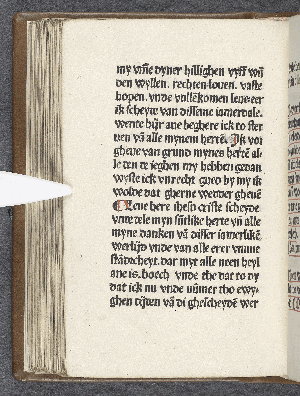 my vm̄e dyner hillighen vyff wū
den wyllen. rechten louen. vaste
hopen. vnde vullēkomen leue eer
ik scheyde van dissame iamerdale.
wente hijr ane beghere ick to ster
uen vā alle mynem hertē. Jk vor
gheue van grund mynes hertē al
le den te ieghen my hebben gedan
wyste ick vnrecht gued by my ik
wolde dat gherne wedder gheuē
Leue here ihesu criste scheyde
vnde dele myn sūtlike herte vā alle
myne danken vā disser iamerlikē
werlijd vnde van alle erer vnane
stādicheyt. dar myt alle neen heyl
ane is. boech vnde the dat to dy
dat ick nu vnde nūmer tho ewy-
ghen tijden vā di ghescheydē wer